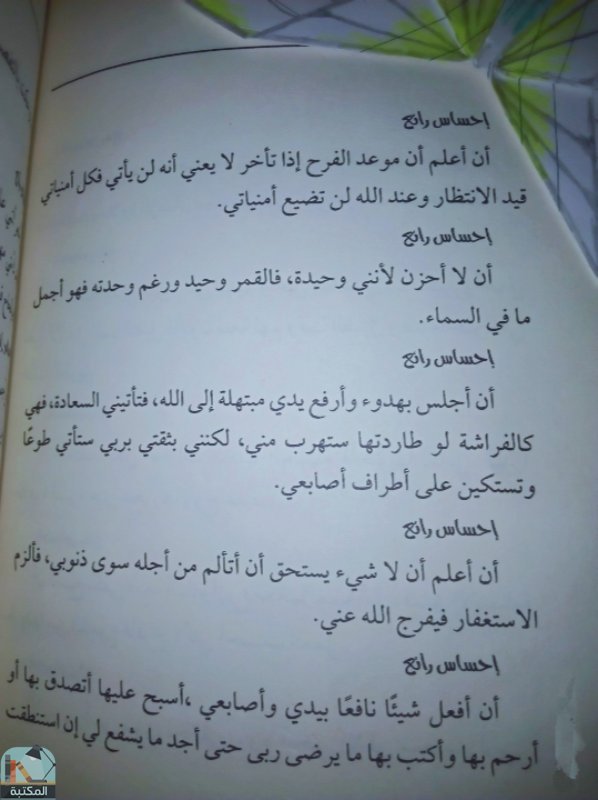 إحساس رائع
أن أعلم أن موعد الفرح إذا تأخر لا يعني أنه لن يأتي فكل أمنياتي
قيد الانتظار وعند الله لن تضيع أمنياتي.
إحساس رائع
أن لا أحزن لأنني وحيدة، فالقمر وحيد ورغم وحدته فهو أجمل
ما في السماء.
إحساس رائع
أن أجلس بهدوء وأرفع يدي مبتهلة إلى الله، فتأتيني السعادة، فهي
كالفراشة لو طاردتها ستهرب مني، لكنني بثقتي بربي ستأتي طوعًا
وتستكين على أطراف أصابعي.
إحساس رائع
أن أعلم أن لا شيء يستحق أن أتألم من أجله سوى ذنوبي، فألزم
الاستغفار فيفرج الله عني.
إحساس رائع
أن أفعل شيئًا نافعًا بيدي وأصابعي ،أسبح عليها أتصدق بها أو
أرحم بها وأكتب بها ما يرضى ربى حتى أجد ما يشفع لي إن استنطقت
المكتبة